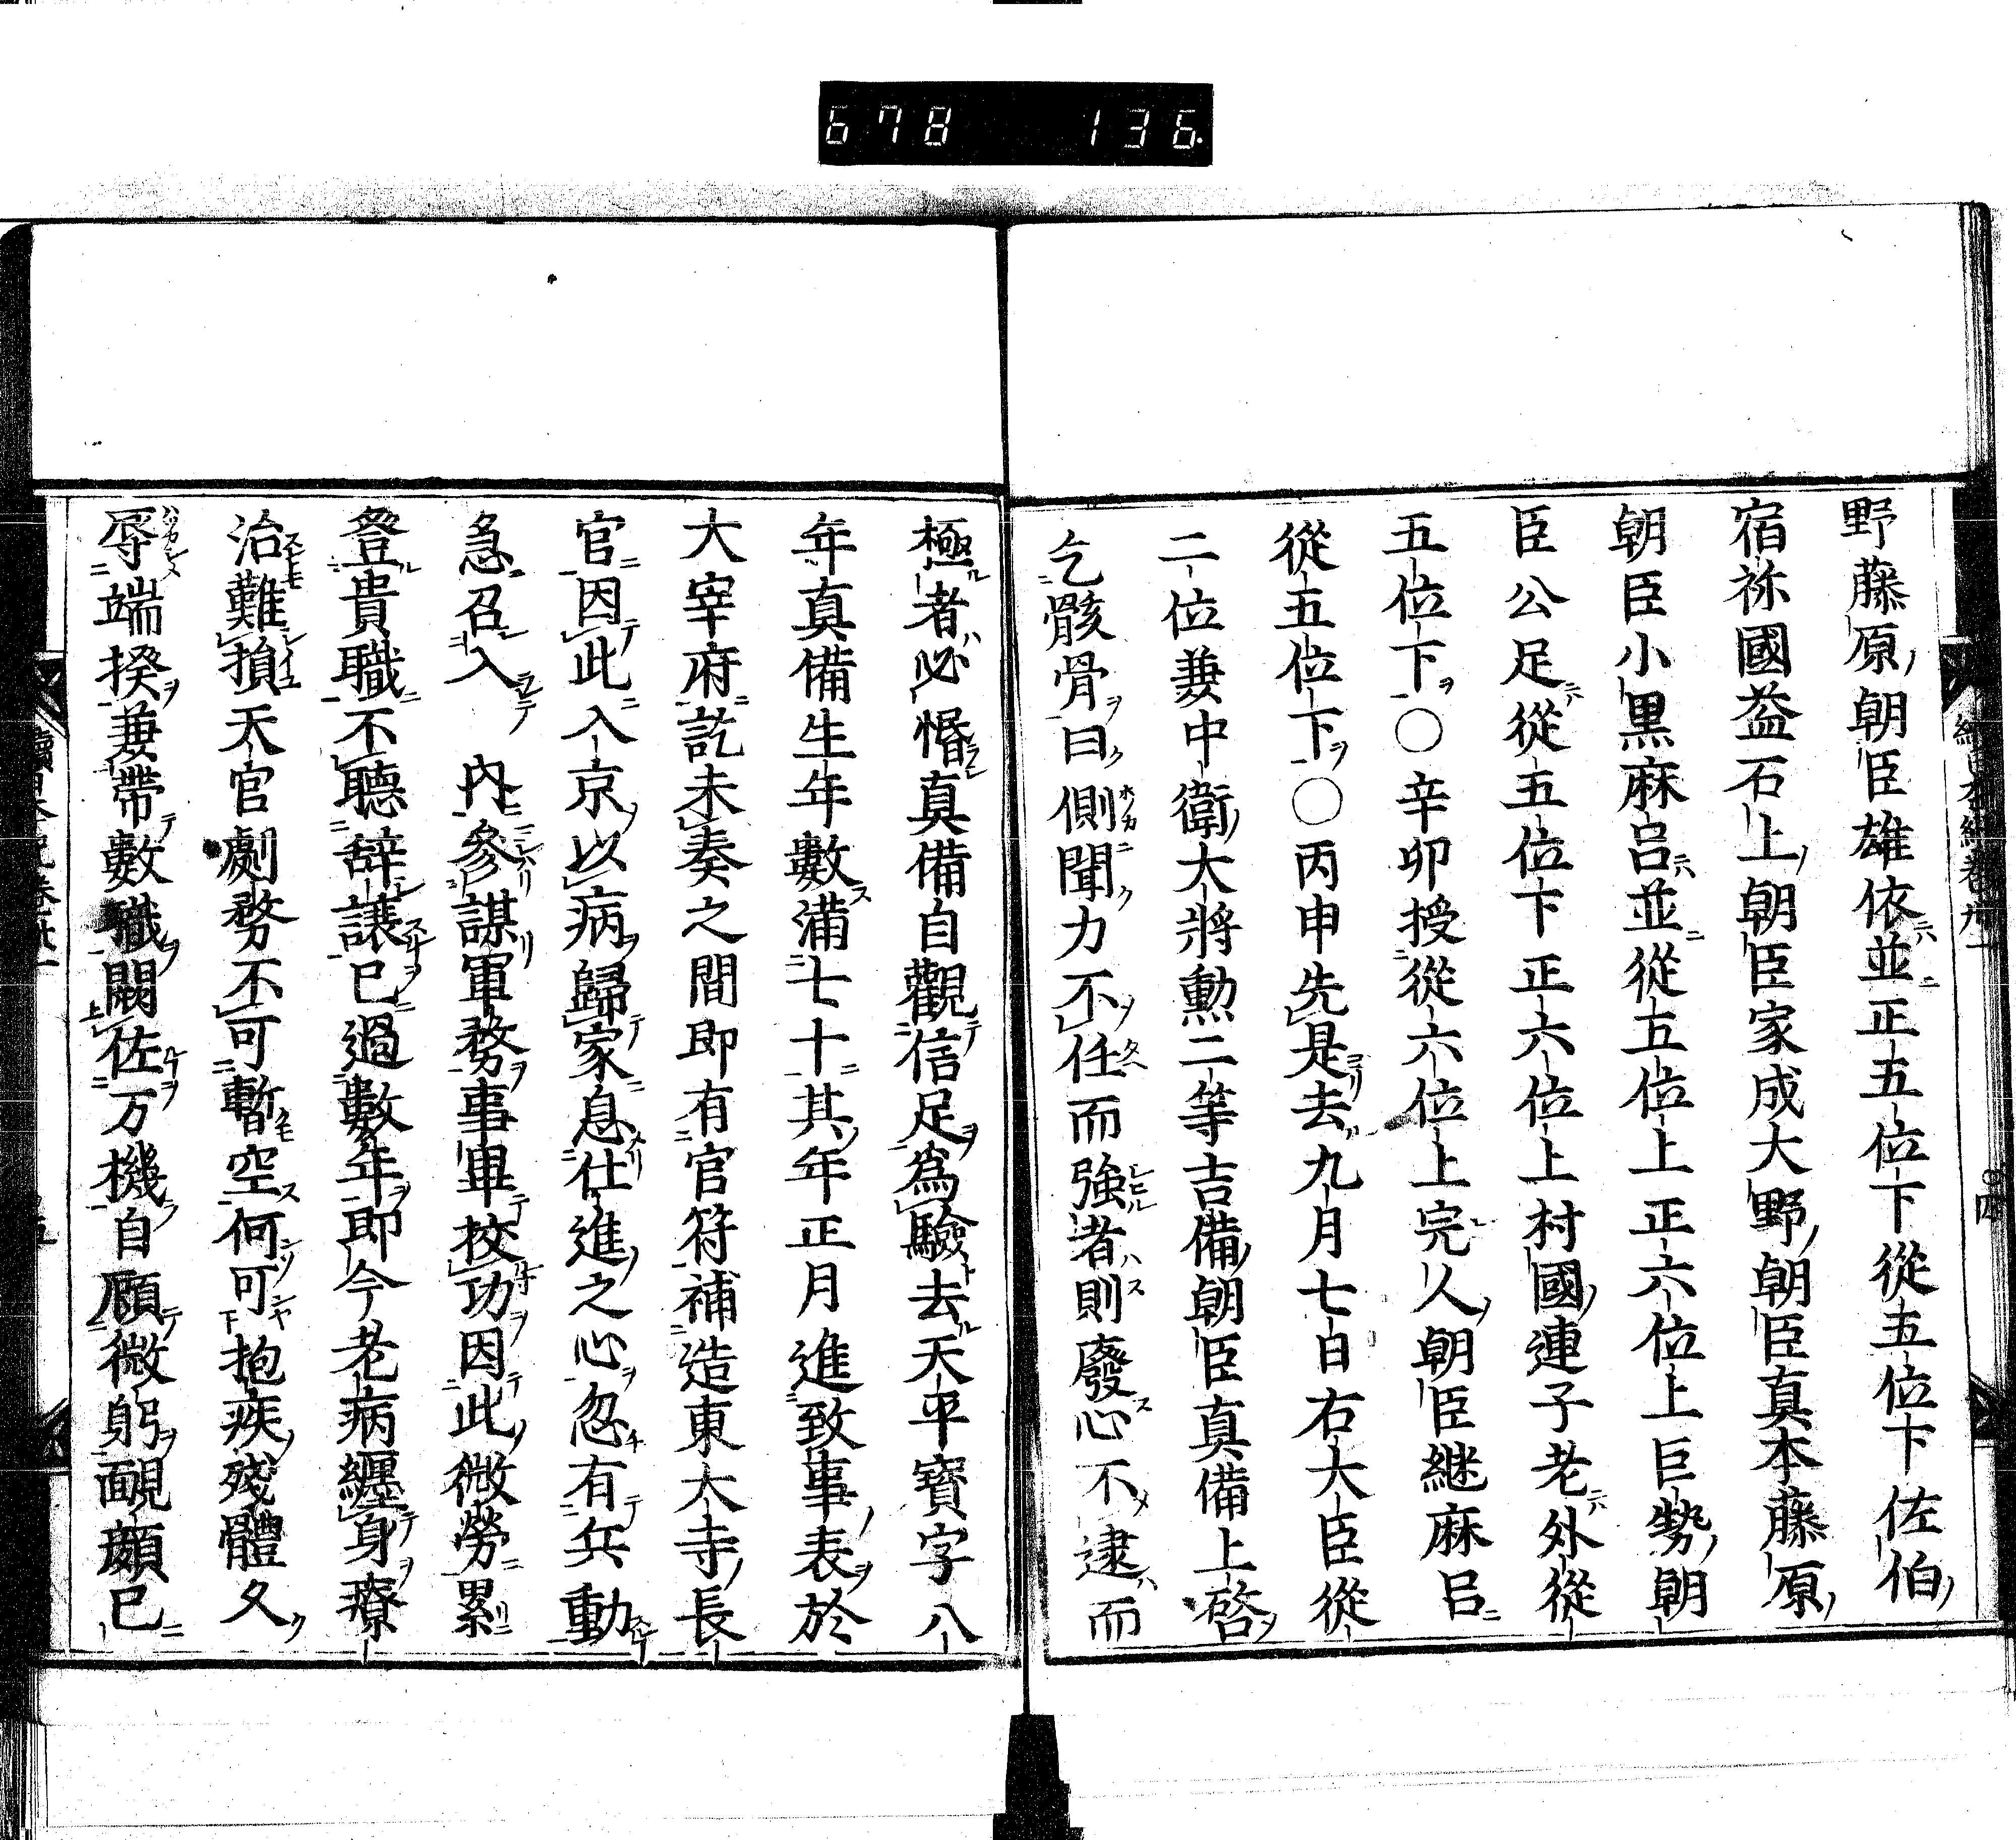 678 136
野藤原朝臣雄依並正五位下從五位下佐伯
宿祢國益石上朝臣家成大野朝臣真本藤原
朝臣小黒麻呂並從五位上正六位上巨勢朝
臣公足從五位下正六位上村國連子老外從
五位下〇辛卯授從六位上完人朝臣継麻呂
從五位下〇丙申先是去九月七日右大臣從
二位兼中衛大將勲二等吉備朝臣真備上啓
乞骸骨曰側聞力不任而強者則廢心不逮而
極者必惛真備自觀信足為驗去天平寳字八
年真備生年數滿七十其年正月進致事表於
大宰府訖未奏之間即有官符補造東大寺長
官因此入京以病歸家息仕進之心忽有兵動
急召入 內參謀軍務事畢挍功因此微勞累
登貴職不聽辞讓已過數年即今老病纏身療
治難損天官劇務不可暫空何可抱疾殘體久
辱端揆兼帶數職闕佐万機自顧微躬靦顏已